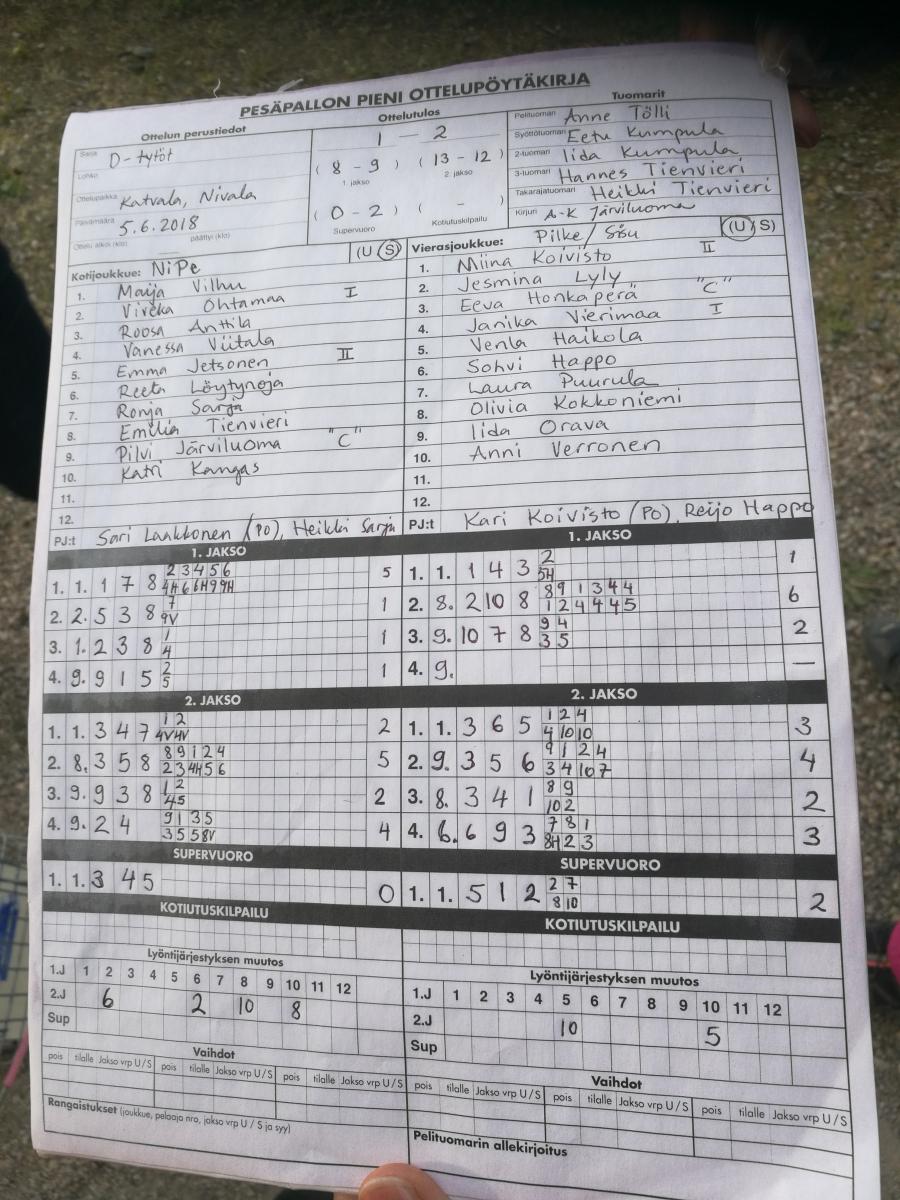 PESÄPALLON PIENI OTTELUPÖYTÄKIRJA
Ottelun perustiedot
Sarja D-tytöt
Lohko
Ottelupaikka Katvala, Nivala
Päivämäärä 5.6.2018
Ottelu alkoi (klo) päättyi (klo)
Ottelutulos
1 — 2
( 8 - 9 ) ( 13 - 12 )
1. jakso 2. jakso
( 0 - 2 ) ( - )
Supervuoro Kotiutuskilpailu
Tuomarit
Pelituomari Anne Tölli
Syöttötuomari Eetu Kumpula
2-tuomari Iida Kumpula
3-tuomari Hannes Tienvieri
Takarajatuomari Heikki Tienvieri
Kirjuri A-K Järviluoma
Kotijoukkue: NiPe (U S)
1. Maija Vilhu
2. Viveka Ohtamaa I
3. Roosa Anttila
4. Vanessa Viitala
5. Emma Jetsonen II
6. Reeta Löytynoja
7. Ronja Sarja
8. Emilia Tienvieri
9. Pilvi Järviluoma "C"
10. Katri Kangas
11.
12.
PJ:t Sari Laakkonen (PO), Heikki Sarja
Vierasjoukkue: Pilke/Sisu (U S)
1. Miina Koivisto II
2. Jesmina Lyly
3. Eeva Honkaperä "C"
4. Janika Vierimaa I
5. Venla Haikola
6. Sohvi Happo
7. Laura Puurula
8. Olivia Kokkoniemi
9. Iida Orava
10. Anni Verronen
11.
12.
PJ:t Kari Koivisto (PO), Reijo Happo
1. JAKSO
2 3 4 5 6
1. 1. 1 7 8 4H 6 6H 9 9H 5
7
2. 2. 5 3 8 9V 1
1
3. 1. 2 3 8 4 1
2
4. 9. 9 1 5 5 1
2. JAKSO
1 2
1. 1. 3 4 7 4V 4V 2
8 9 1 2 4
2. 8. 3 5 8 2 3 4H 5 6 5
1 2
3. 9. 9 3 8 4 5 2
9 1 3 5
4. 9. 2 4 3 5 5 8V 4
SUPERVUORO
1. 1. 3 4 5 0
KOTIUTUSKILPAILU
Lyöntijärjestyksen muutos
1.J 1 2 3 4 5 6 7 8 9 10 11 12
2.J 6 2 10 8
Sup
Vaihdot
pois tilalle Jakso vrp U/S pois tilalle Jakso vrp U/S pois tilalle Jakso vrp U/S
Rangaistukset (joukkue, pelaaja nro, jakso vrp U / S ja syy)
1. JAKSO
2
1. 1. 1 4 3 5H 1
8 9 1 3 4 4
2. 8. 2 10 8 1 2 4 4 4 5 6
9 4
3. 9. 10 7 8 3 5 2
4. 9. —
2. JAKSO
1 2 4
1. 1. 3 6 5 4 10 10 3
9 1 2 4
2. 9. 3 5 6 3 4 10 7 4
8 9
3. 8. 3 4 1 10 2 2
7 8 1
4. 6. 6 9 3 8H 2 3 3
SUPERVUORO
2 7
1. 1. 5 1 2 8 10 2
KOTIUTUSKILPAILU
Lyöntijärjestyksen muutos
1.J 1 2 3 4 5 6 7 8 9 10 11 12
2.J 10 5
Sup
Vaihdot
pois tilalle Jakso vrp U/S pois tilalle Jakso vrp U/S pois tilalle Jakso vrp U/S
Pelituomarin allekirjoitus